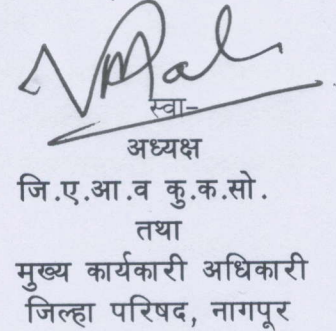 स्वा-
अध्यक्ष
जि.ए.आ.व कु.क.सो.
तथा
मुख्य कार्यकारी अधिकारी
जिल्हा परिषद, नागपूर